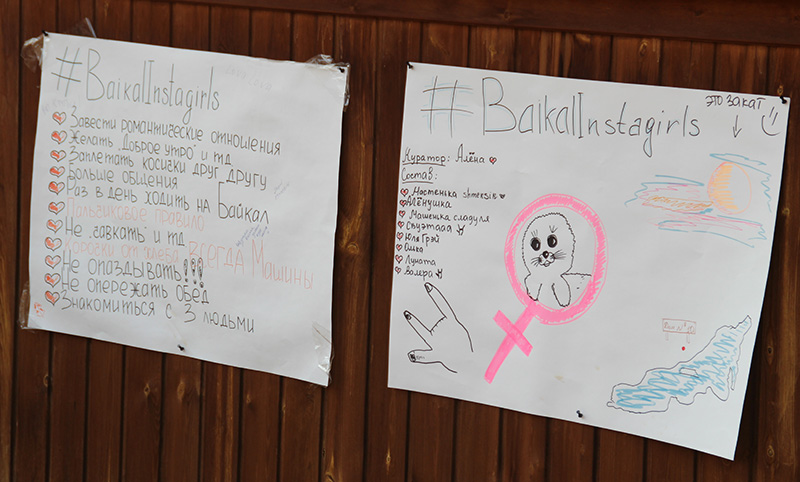 #BaikalInstagirls
Завести романтические отношения
Желать "Доброе утро" и тд
Заплетать косички друг другу
Больше общения
Раз в день ходить на Байкал
Пальчиковое правило
Не "савкать" и тд
Корочки от хлеба ВСЕГДА Машины
Не опаздывать!!!
Не опережать обед
Знакомиться с 3 людьми
#BaikalInstagirls
ЭТО ЗАКАТ
Куратор: Алёна
Состав:
Настенька shmeksik
Алёнушка
Машенька сладуля
Юля Грэй
Луната
Валера